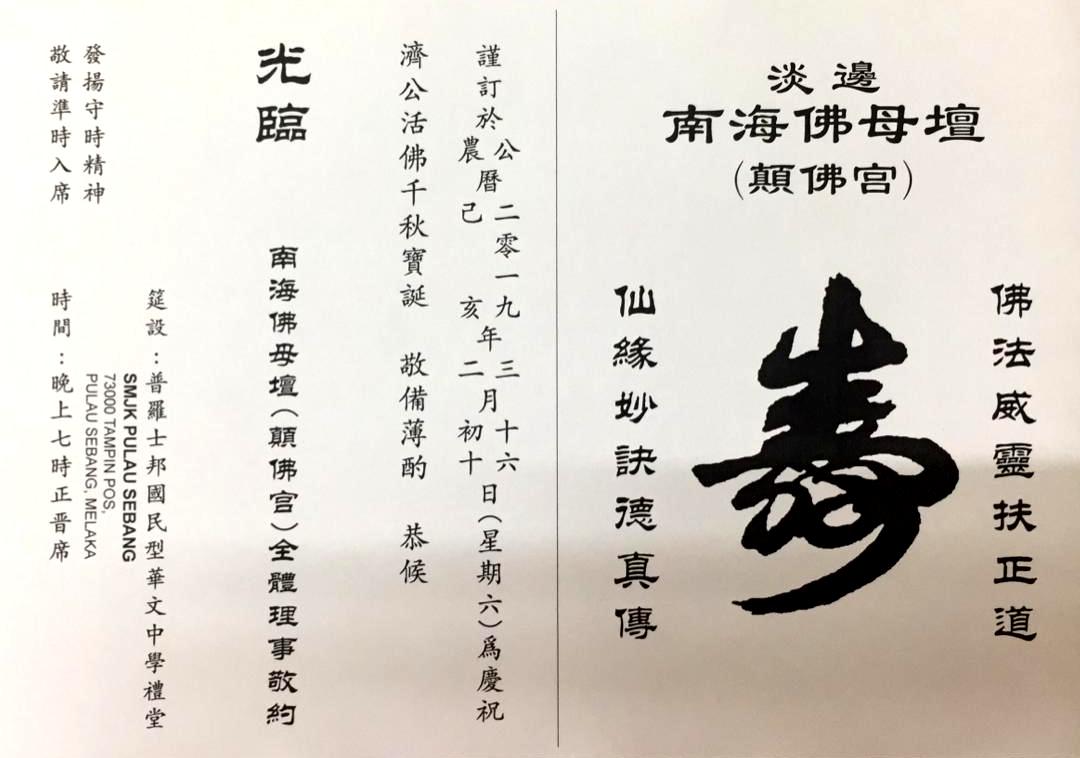 淡邊
南海佛母壇
(顛佛宫)
佛法威靈扶正道
壽
仙緣妙訣德真傳
謹訂於公農曆二零一九己亥年三二月十六初十日(星期六)爲慶祝
濟公活佛千秋寶誕 敬備薄酌 恭候
光臨
南海佛母壇(顛佛宫)全體理事敬約
筵設:普羅士邦國民型華文中學禮堂
SMJK PULAU SEBANG
73000 TAMPIN POS,
PULAU SEBANG, MELAKA
時間:晚上七時正晋席
發揚守時精神
敬請準時入席